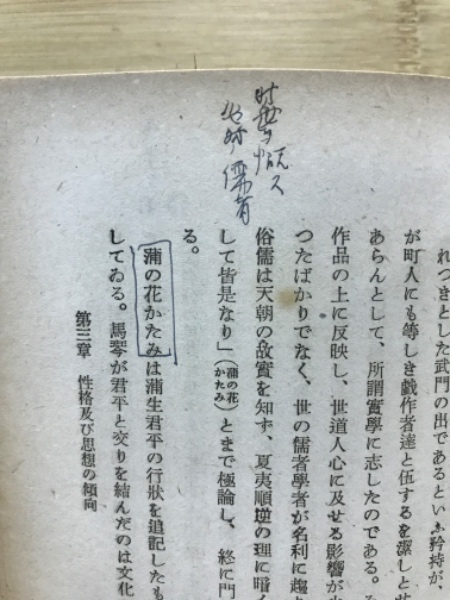 れつきとした武門の出であるといふ矜持が、
が町人にも等しき戯作者達と伍するを潔しとせ
あらんとして、所謂實學に志したのである。
作品の上に反映し、世道人心に及せる影響が
つたばかりでなく、世の儒者學者が名利に趨
俗儒は天朝の故實を知ず、夏夷順逆の理に暗く
して皆是なり」（蒲の花かたみ）とまで極論し、終に門
る。
蒲の花かたみは蒲生君平の行狀を追記したも
してゐる。馬琴が君平と交りを結んだのは文化
第三章 性格及び思想の傾向